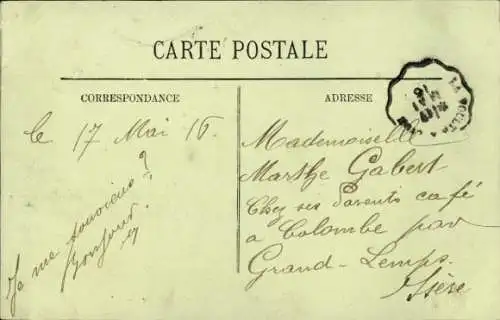 CARTE POSTALE
CORRESPONDANCE
ADRESSE
le 17 Mai 16.
Je me souviens?
Bonjour.
Mademoiselle
Marthe Gabert
Chez ses Parents café
a Colombe par
Grand-Lemps.
Isère
LA VOULTE A
17
MAI
16